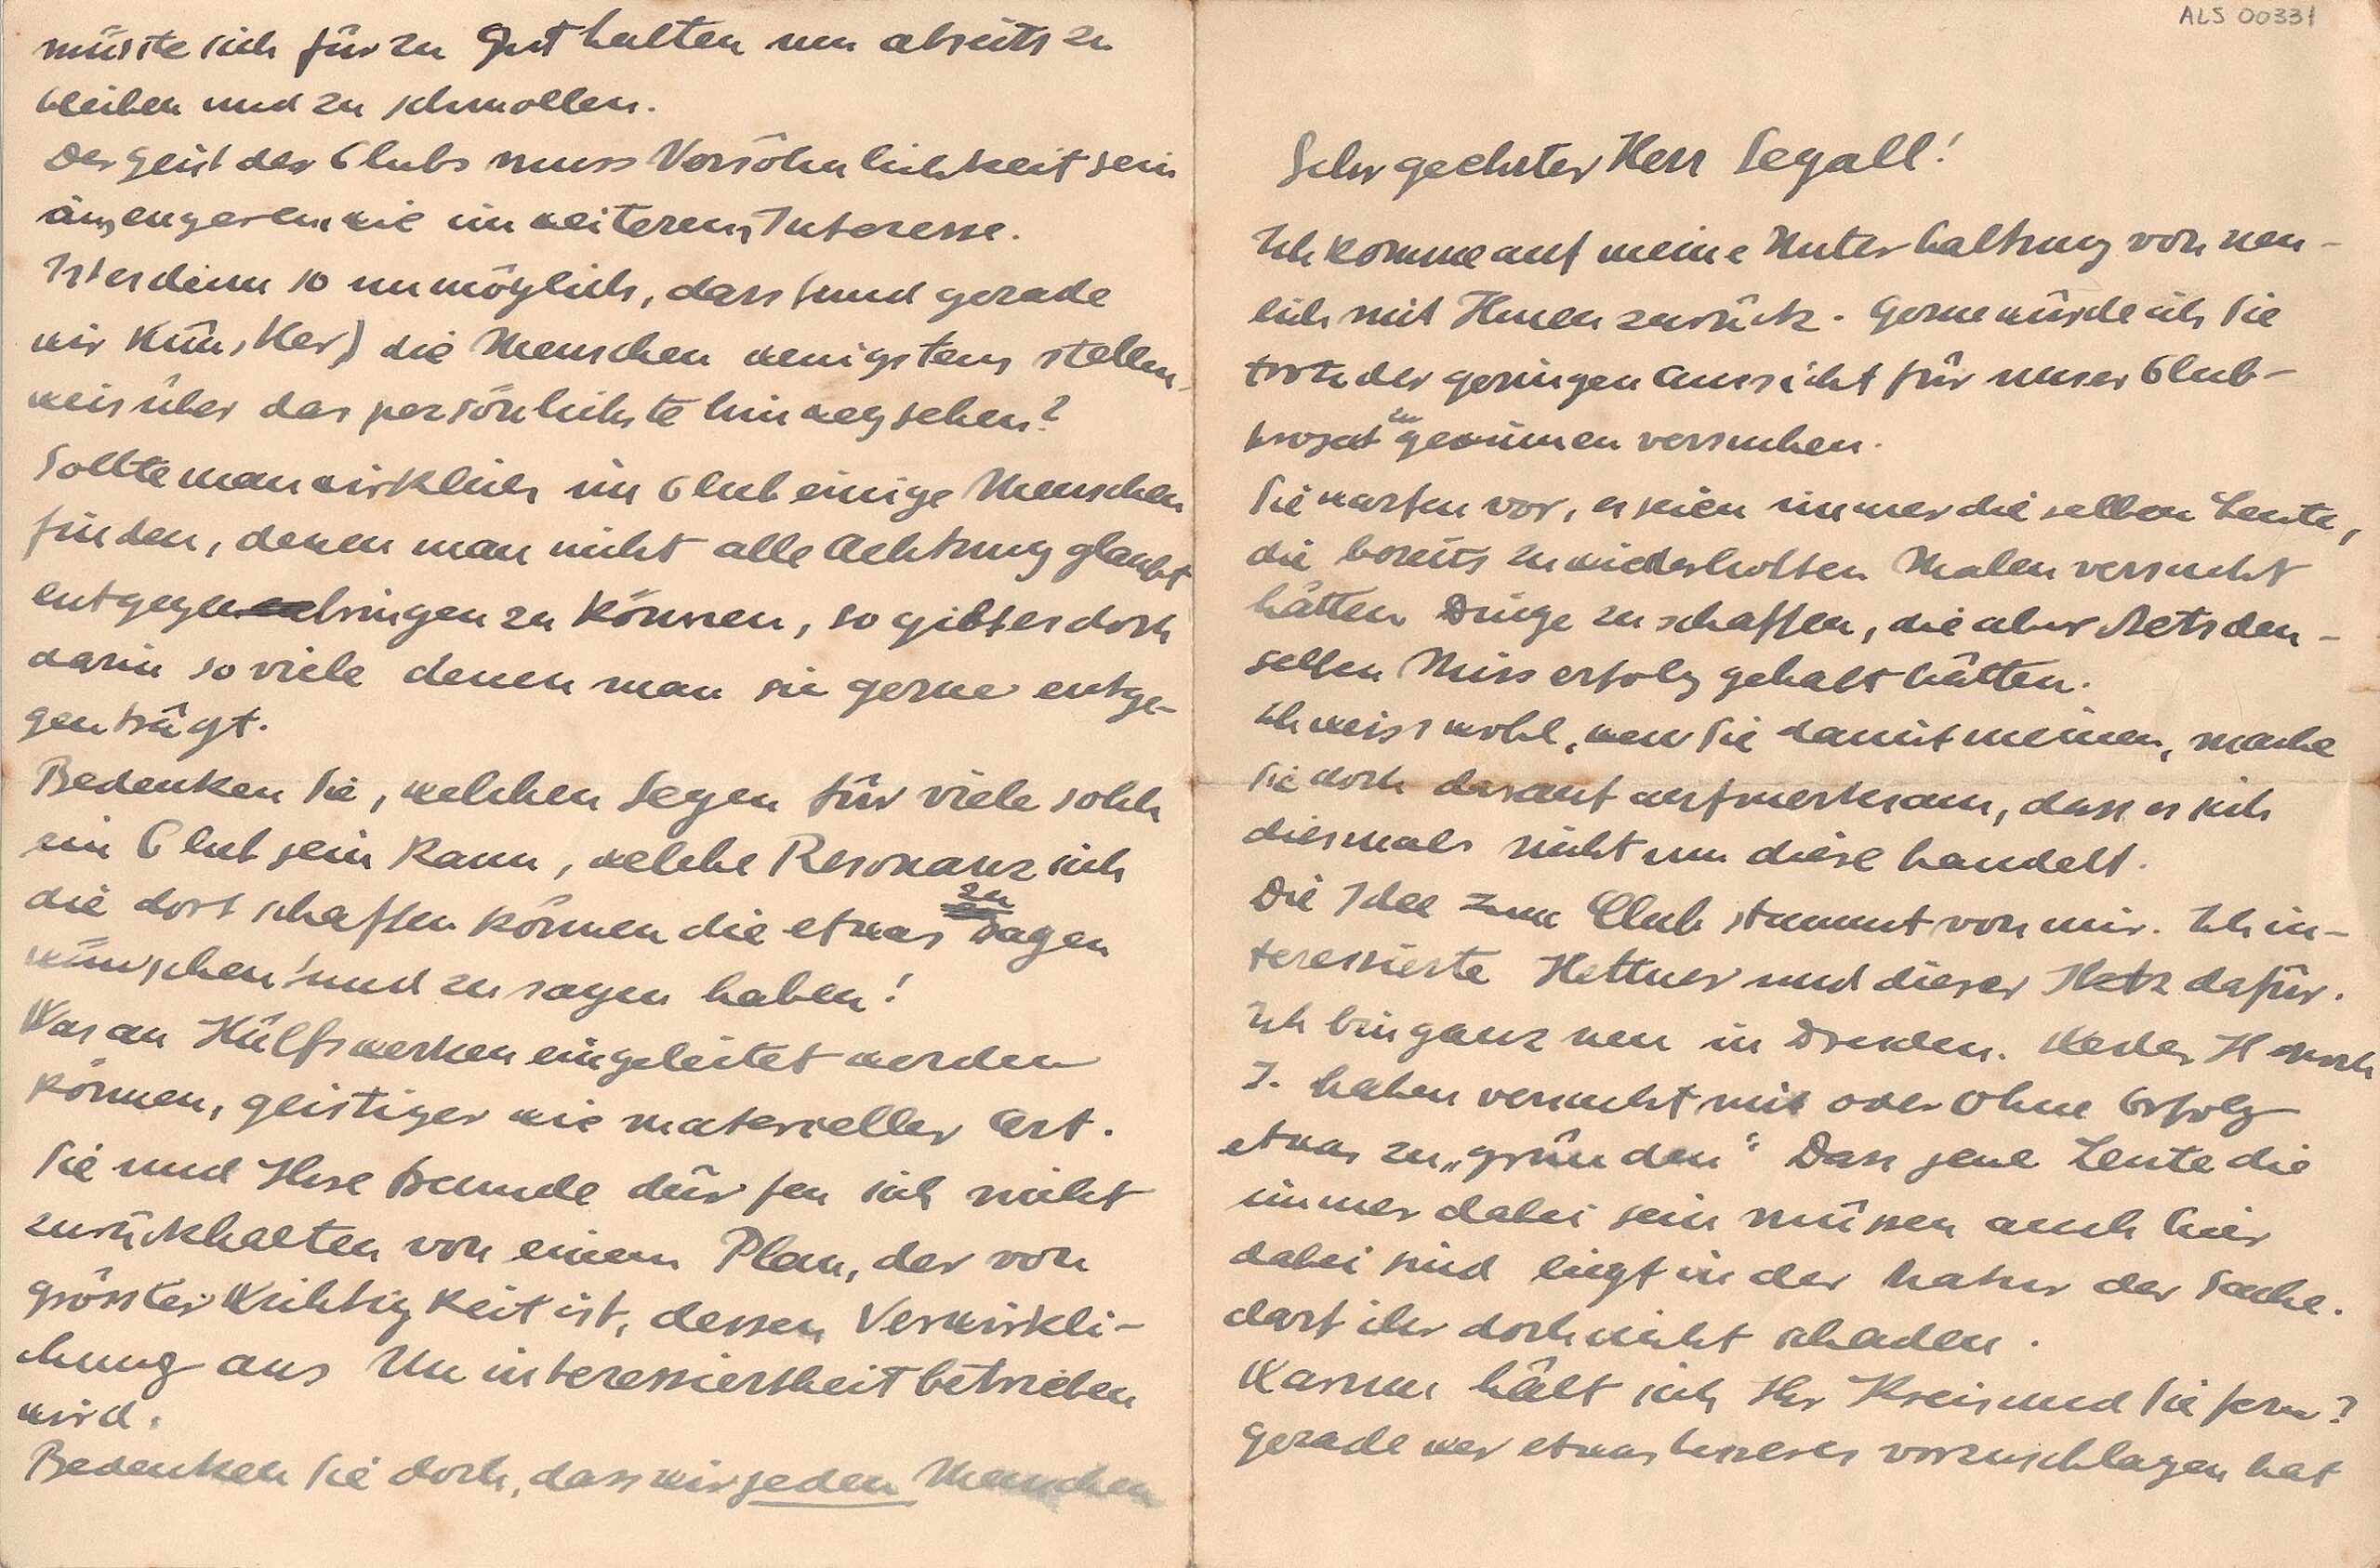 ALS 00331
Sehr geehrter Herr Segall!
Ich komme auf meine Unterhaltung von neu-
lich mit Ihnen zurück. Gerne würde ich Sie
trotz der geringen Aussicht für unser Club-
projekt zu gewinnen versuchen.
Sie warfen vor, es seien immer die selben Leute,
die bereits zu wiederholten Malen versucht
hätten Dinge zu schaffen, die aber stets den-
selben Misserfolg gehabt hätten.
Ich weiss wohl, wen Sie damit meinen, mache
Sie doch darauf aufmerksam, dass es sich
diesmals nicht um diese handelt.
Die Idee zum Club stammt von mir. Ich in-
teressierte Hettner und dieser dafür.
Ich bin ganz neu in Dresden. Weder H noch
J. haben versucht mit oder ohne Erfolg
etwas zu „gründen“ Dass jene Leute die
immer dabei sein müssen auch hier
dabei sind liegt in der Natur der Sache.
darf ihr doch nicht schaden.
Warum hält sich Ihr Kreis und Sie fern?
Gerade wer etwas besseres vorzuschlagen hat
müsste sich für zu gut halten um abseits zu
bleiben und zu schmollen.
Der Geist des Clubs muss Versöhnlichkeit sein
im engeren wie im weiteren Interesse.
Ist es denn so unmöglich, dass (und gerade
wir Künstler) die Menschen wenigstens stellen-
weis über das persönlichste hinwegsehen?
Sollte man wirklich im Club einige Menschen
finden, denen man nicht alle Achtung glaubt
entgegenbringen zu können, so gibt es doch
darin so viele denen man sie gerne entge-
genträgt.
Bedenken Sie, welchen Segen für viele solch
ein Club sein kann, welche Resonanz sich
die dort schaffen können die etwas zu sagen
wünschen und zu sagen haben!
Was an Hülfswerken eingeleitet werden
können, geistiger wie materieller Art.
Sie und Ihre Freunde dürfen sich nicht
zurückhalten von einem Plan, der von
grösster Wichtigkeit ist, dessen Verwirkli-
chung aus Uninteressiertheit betrieben
wird.
Bedenken Sie doch, dass wir jeden Menschen